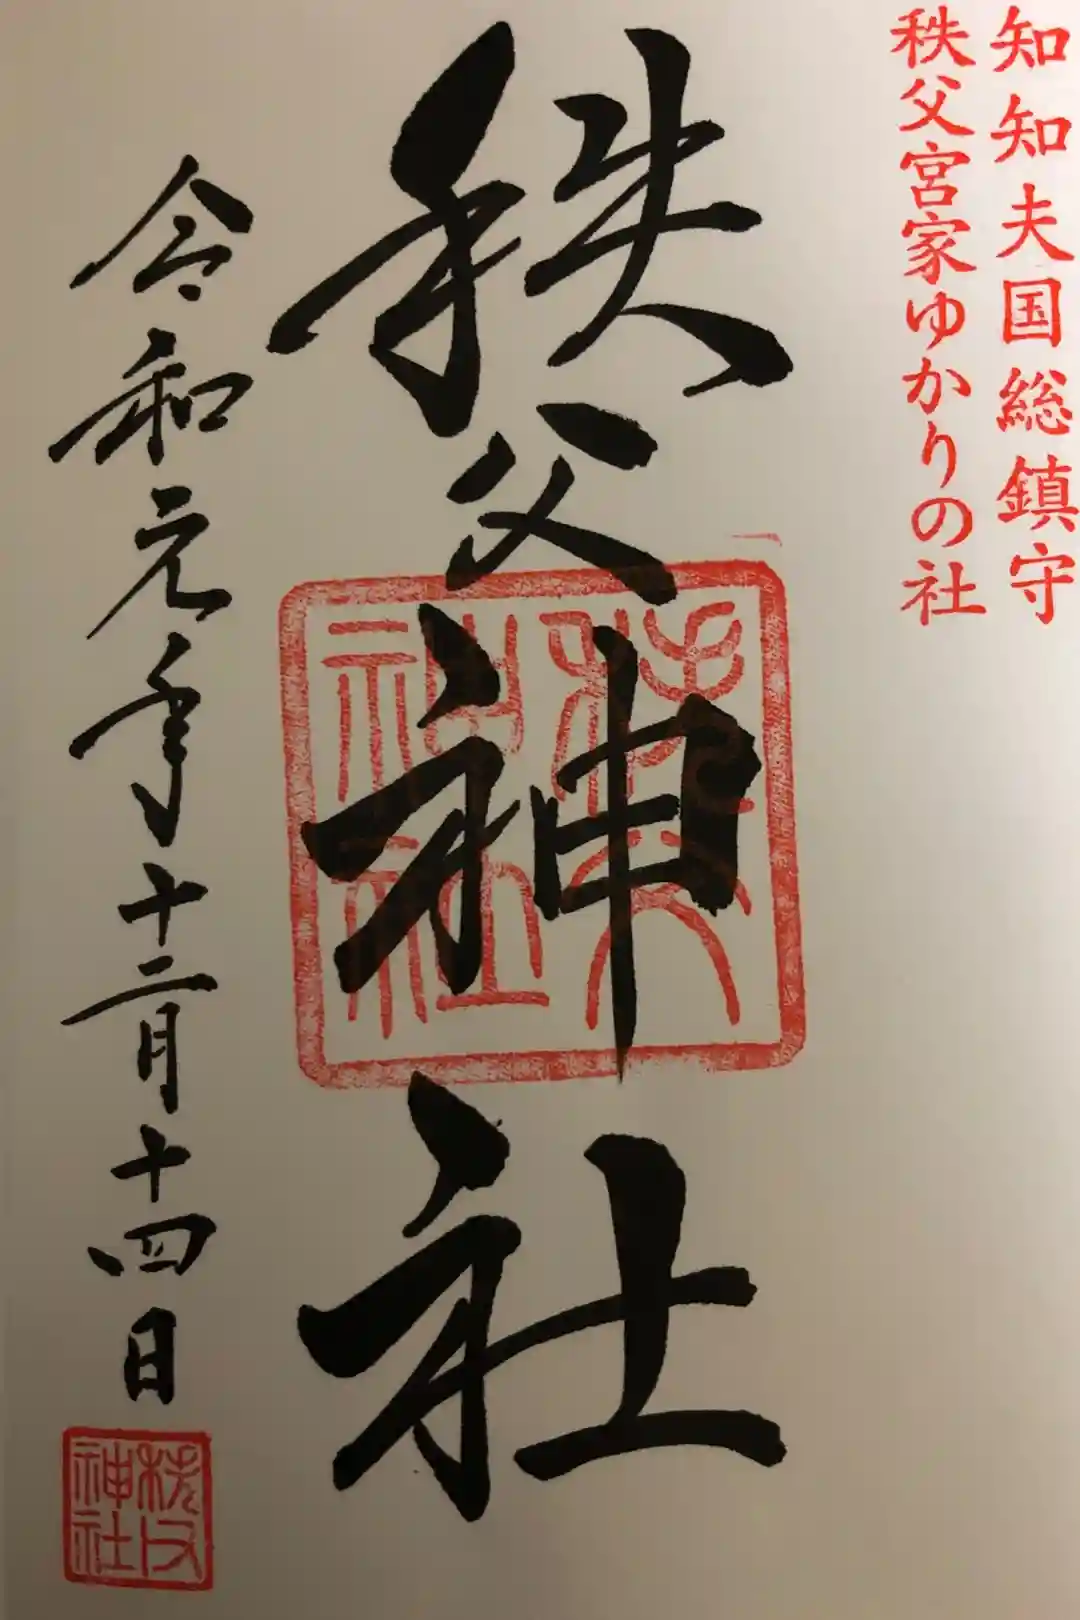 知知夫国総鎮守
秩父宮家ゆかりの社
秩父神社
秩父神社
令和元年十二月十四日
秩父神社